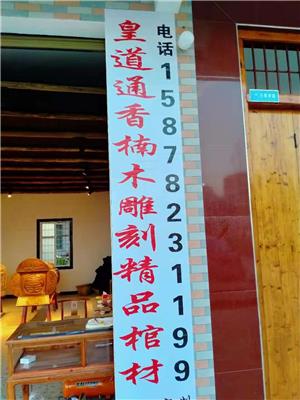 皇道通香楠木雕刻精品棺材
电话15878231199